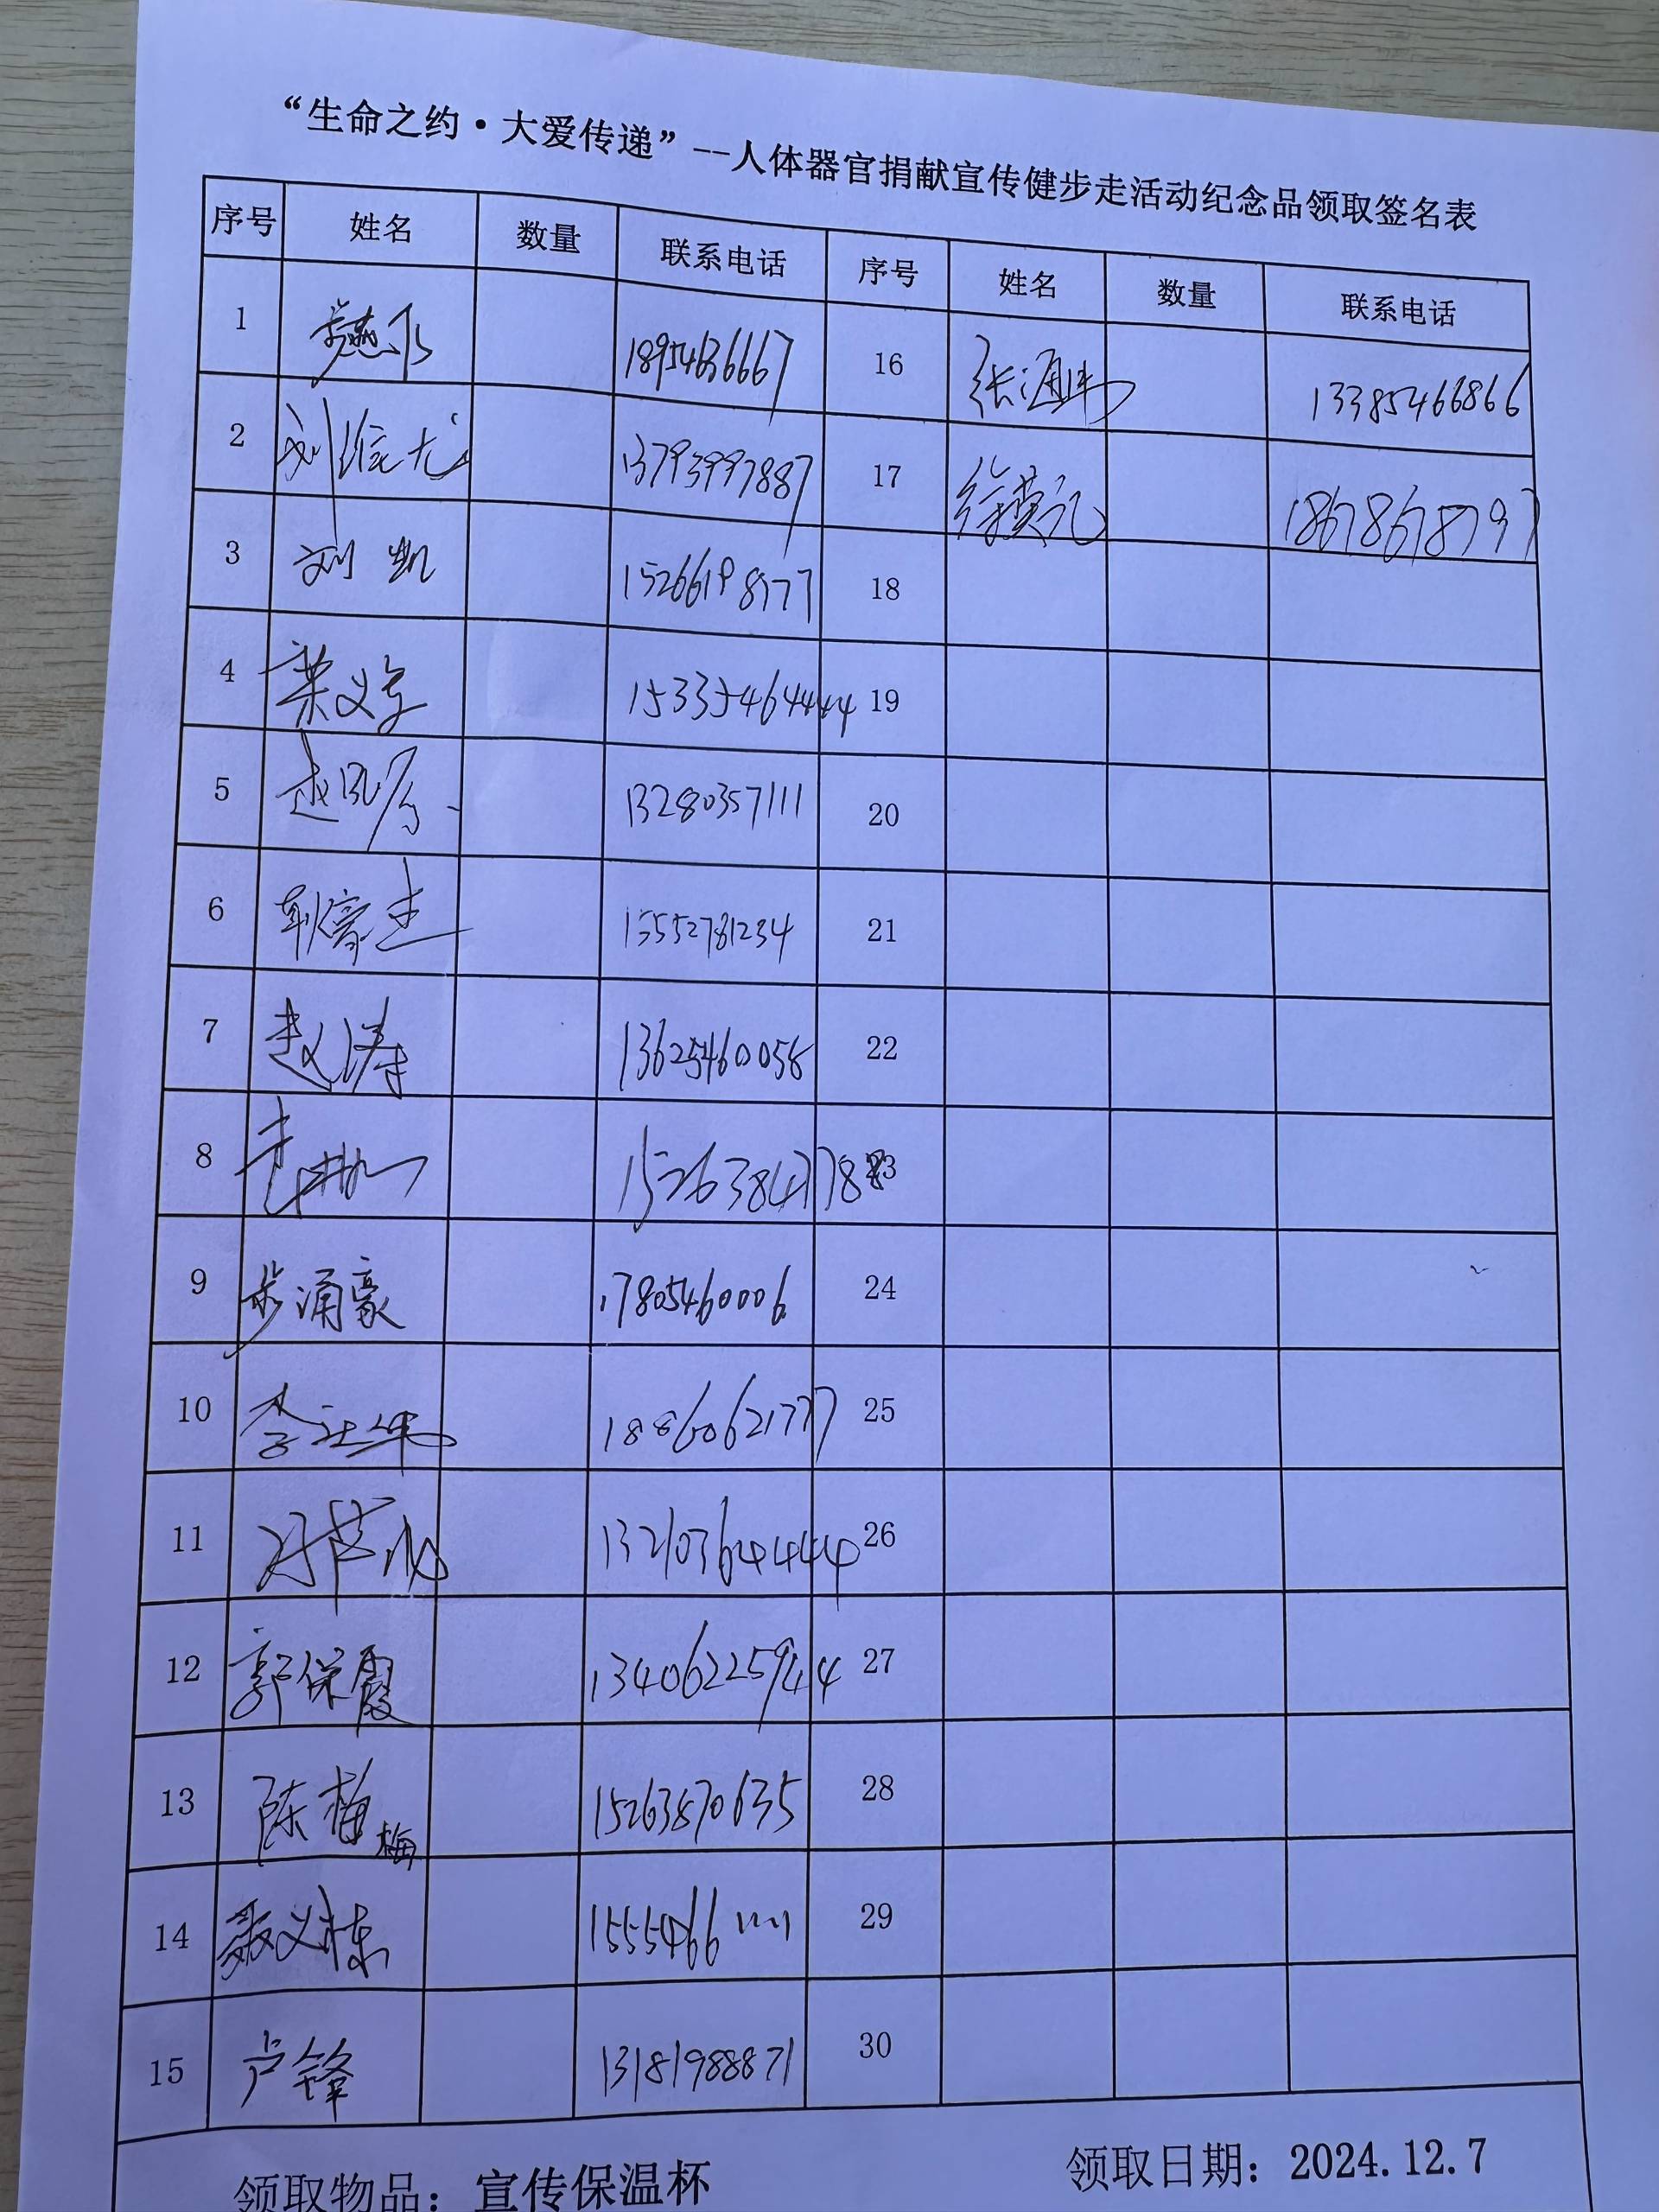 “生命之约·大爱传递”--人体器官捐献宣传健步走活动纪念品领取签名表
序号 姓名 数量 联系电话 序号 姓名 数量 联系电话
1 18954636667 16 张通 13385466866
2 刘 13793997887 17 徐 18678678797
3 刘凯 15266198577 18
4 荣义 15335464444 19
5 赵凤 13280357111 20
6 豪杰 15552781234 21
7 赵涛 13625460058 22
8 15263847788 23
9 步涌豪 17805460006 24
10 李 18860621777 25
11 13210364444 26
12 郭保霞 13406225944 27
13 陈梅 梅 15263870635 28
14 聂义栋 15554661111 29
15 卢锋 13181988871 30
领取物品：宣传保温杯 领取日期：2024.12.7